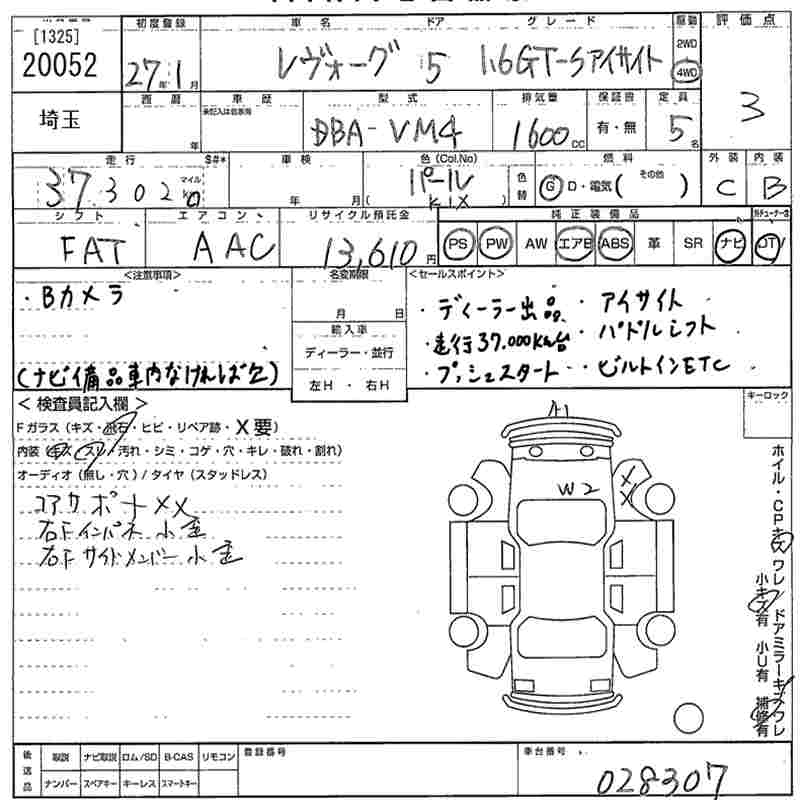 [1325]
20052
初度登録
27年1月
車名
レヴォーグ
ドア
5
グレード
1.6GT-Sアイサイト
駆動
2WD
4WD
評価点
3
埼玉
西暦
年
車歴
未記入は自家用
型式
DBA-VM4
排気量
1600cc
保証書
有・無
定員
5名
走行
37302
マイル
km
S#*
車検
年 月
色(Col.No)
パール
( K1X )
色替
燃料
G D・電気( その他 )
外装
C
内装
B
シフト
FAT
エアコン
AAC
リサイクル預託金
13,610円
純正装備品
PS PW AW エアB ABS 革 SR ナビ
<注意事項>
・Bカメラ
(ナビ備品車内なければ欠)
名変期限
月 日
輸入車
ディーラー・並行
左H ・ 右H
<セールスポイント>
・ディーラー出品 ・アイサイト
・走行37.000Km台 ・パドルシフト
・プッシュスタート ・ビルトインETC
<検査員記入欄>
Fガラス(キズ・飛石・ヒビ・リペア跡・X要)
内装(キズ・スレ・汚れ・シミ・コゲ・穴・キレ・破れ・割れ)
オーディオ(無し・穴)/タイヤ(スタッドレス)
コアサポートXX
右Fインパネ小歪
右Fサイドメンバー小歪
A1
W2
X
X
キーロック
ホイル・CPキズワレ/ドアミラーキズワレ
小キズ有 小U有 補修有
後送品
取説 ナビ取説 ロム/SD B-CAS リモコン
ナンバー スペアキー キーレス スマートキー
登録番号
車台番号
028307